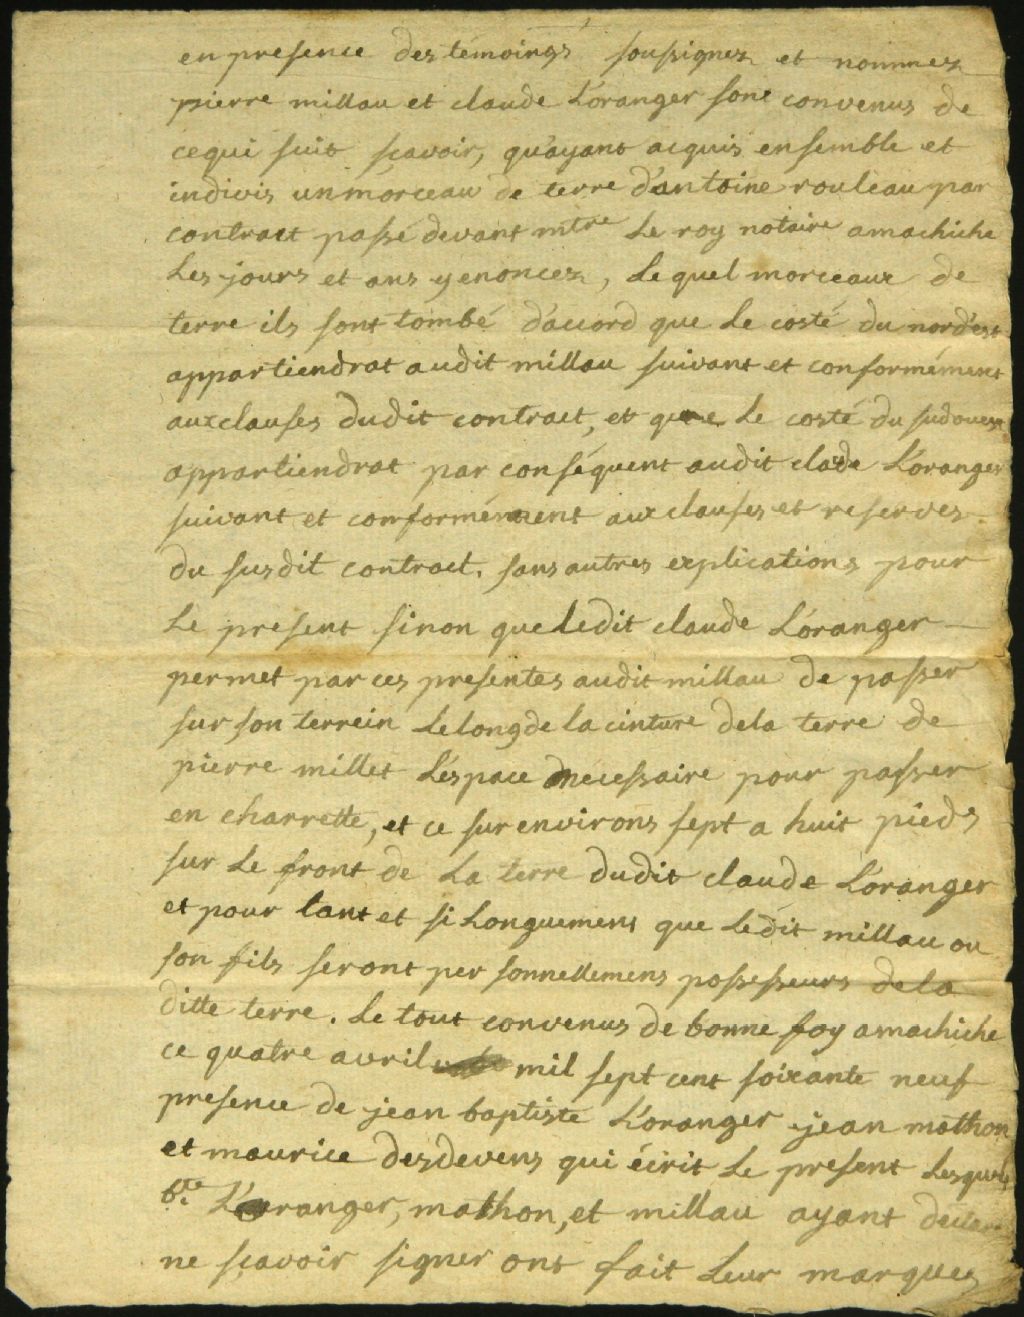 en presence des témoings soussignez et nommez
pierre millau et claude L'oranger sont convenus de
cequi suit scavoir, qu'ayant acquis ensemble et
indivis un morceau de terre d'antoine rouleau par
contract passé devant mtre Le roy notaire amachiche
Les jours et ans yenoncez, Le quel morceaux de
terre ils sont tombé d'accord que Le costé du nordest
appartiendrat audit millau suivant et conformément
aux clauses dudit contract, et que Le costé du sudouest
appartiendrat par conséquent audit claude L'oranger
suivant et conformément aux clauses et reserves
du susdit contract. sans autres explications pour
Le present sinon que ledit claude L'oranger
permet par ces presentes audit millau de passer
sur son terrein Le long de la cinture dela terre de
pierre millet L'éspace necessaire pour passer
en charrette, et ce sur environs sept a huit pieds
sur Le front de La terre dudit claude L'oranger
et pour tant et si Longuemens que Ledit millau ou
son fils seront personnellemens possesseurs dela
ditte terre. Le tout convenus de bonne foy amachiche
ce quatre avril mil sept cent soixante neuf
presence de jean baptiste L'oranger jean mathon
et maurice desdevens qui écrit Le present Lesquels
bte L'oranger, mathon, et millau ayant declaré
ne sçavoir signer ont fait Leur marques